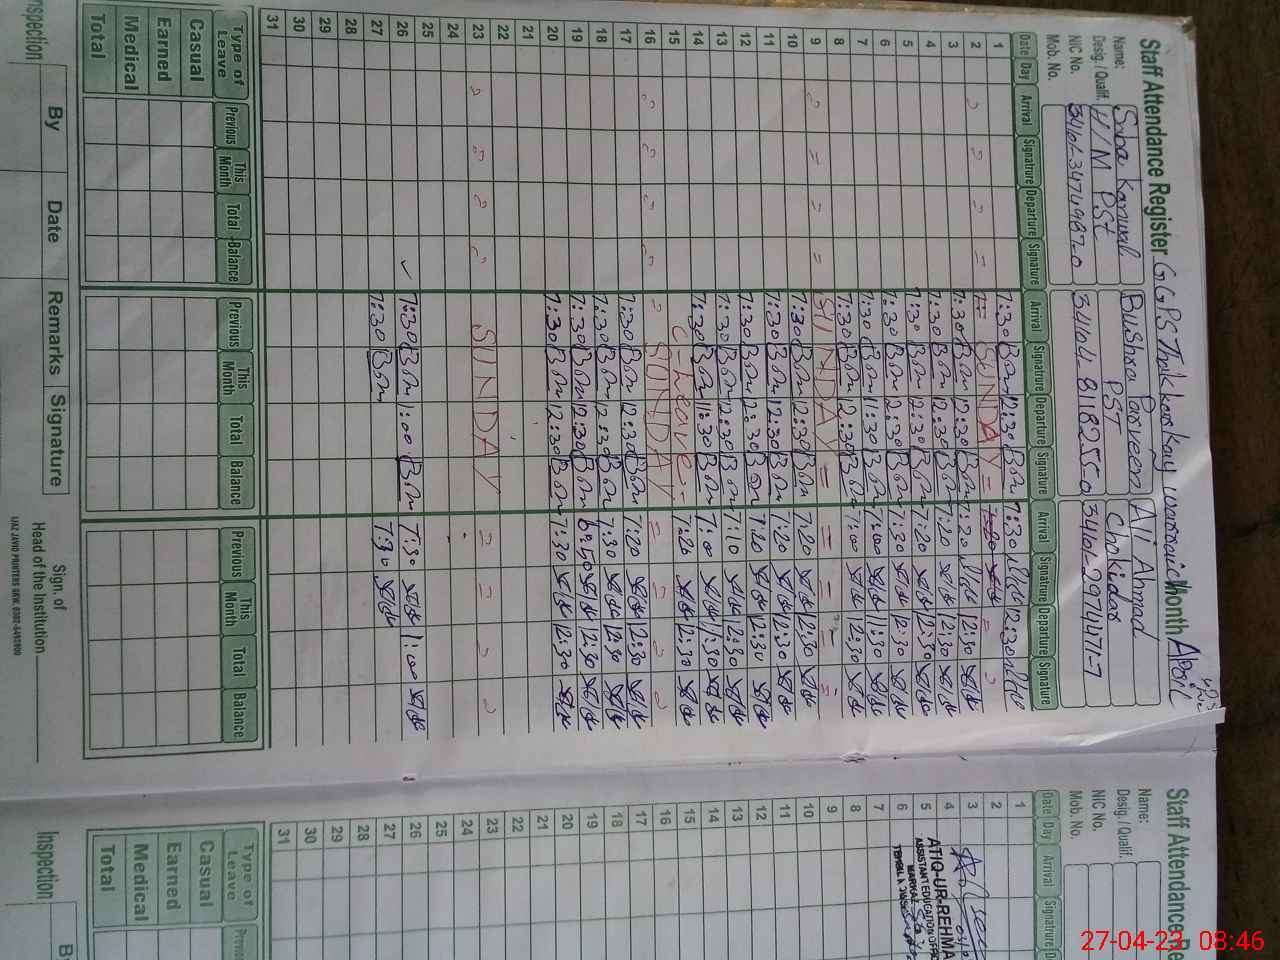 Staff Attendance Register GGPS Thakkar kay warraich Month April 2023
Name: Saba Kanwal Bushra Parveen Ali Ahmad
Desig. / Qualif. H/M PST PST Chokidar
NIC No. 34101-3474987-0 34104 8118255-0 34101-2974471-7
Mob. No.
Date Day Arrival Signatrure Departure Signature Arrival Signatrure Departure Signature Arrival Signatrure Departure Signature
1 7:30 12:30 7:30 12:30
2 SUNDAY
3 7:30 12:30 7:20 12:30
4 7:30 12:30 7:20 12:30
5 7:30 12:30 7:20 12:30
6 7:30 12:30 7:30 12:30
7 7:30 11:30 7:00 11:30
8 7:30 12:30 7:00 12:30
9 SUNDAY
10 7:30 12:30 7:20 12:30
11 7:30 12:30 7:20 12:30
12 7:30 12:30 7:20 12:30
13 7:30 12:30 7:10 12:30
14 7:30 11:30 7:00 11:30
15 C-Leave 7:20 12:30
16 SUNDAY
17 7:30 12:30 7:20 12:30
18 7:30 12:30 7:30 12:30
19 7:30 12:30 6:50 12:30
20 7:30 12:30 7:30 12:30
21
22
23 SUNDAY
24
25
26 7:30 1:00 7:30 1:00
27 7:30 7:30
28
29
30
31
Type of Leave Previous This Month Total Balance Previous This Month Total Balance Previous This Month Total Balance
Casual
Earned
Medical
Total
Inspection By Date Remarks Signature
Sign. of
Head of the Institution
Staff Attendance Re
Name:
Desig. / Qualif.
NIC No.
Mob. No.
Date Day Arrival Signatrure
1
2
3
4
5
6
7
8
9
10
11
12
13
14
15
16
17
18
19
20
21
22
23
24
25
26
27
28
29
30
31
ATIQ-UR-REHMA
ASSISTANT EDUCATION OFFIC
MARKAZ
Type of Leave Previo
Casual
Earned
Medical
Total
Inspection B
27-04-23 08:46